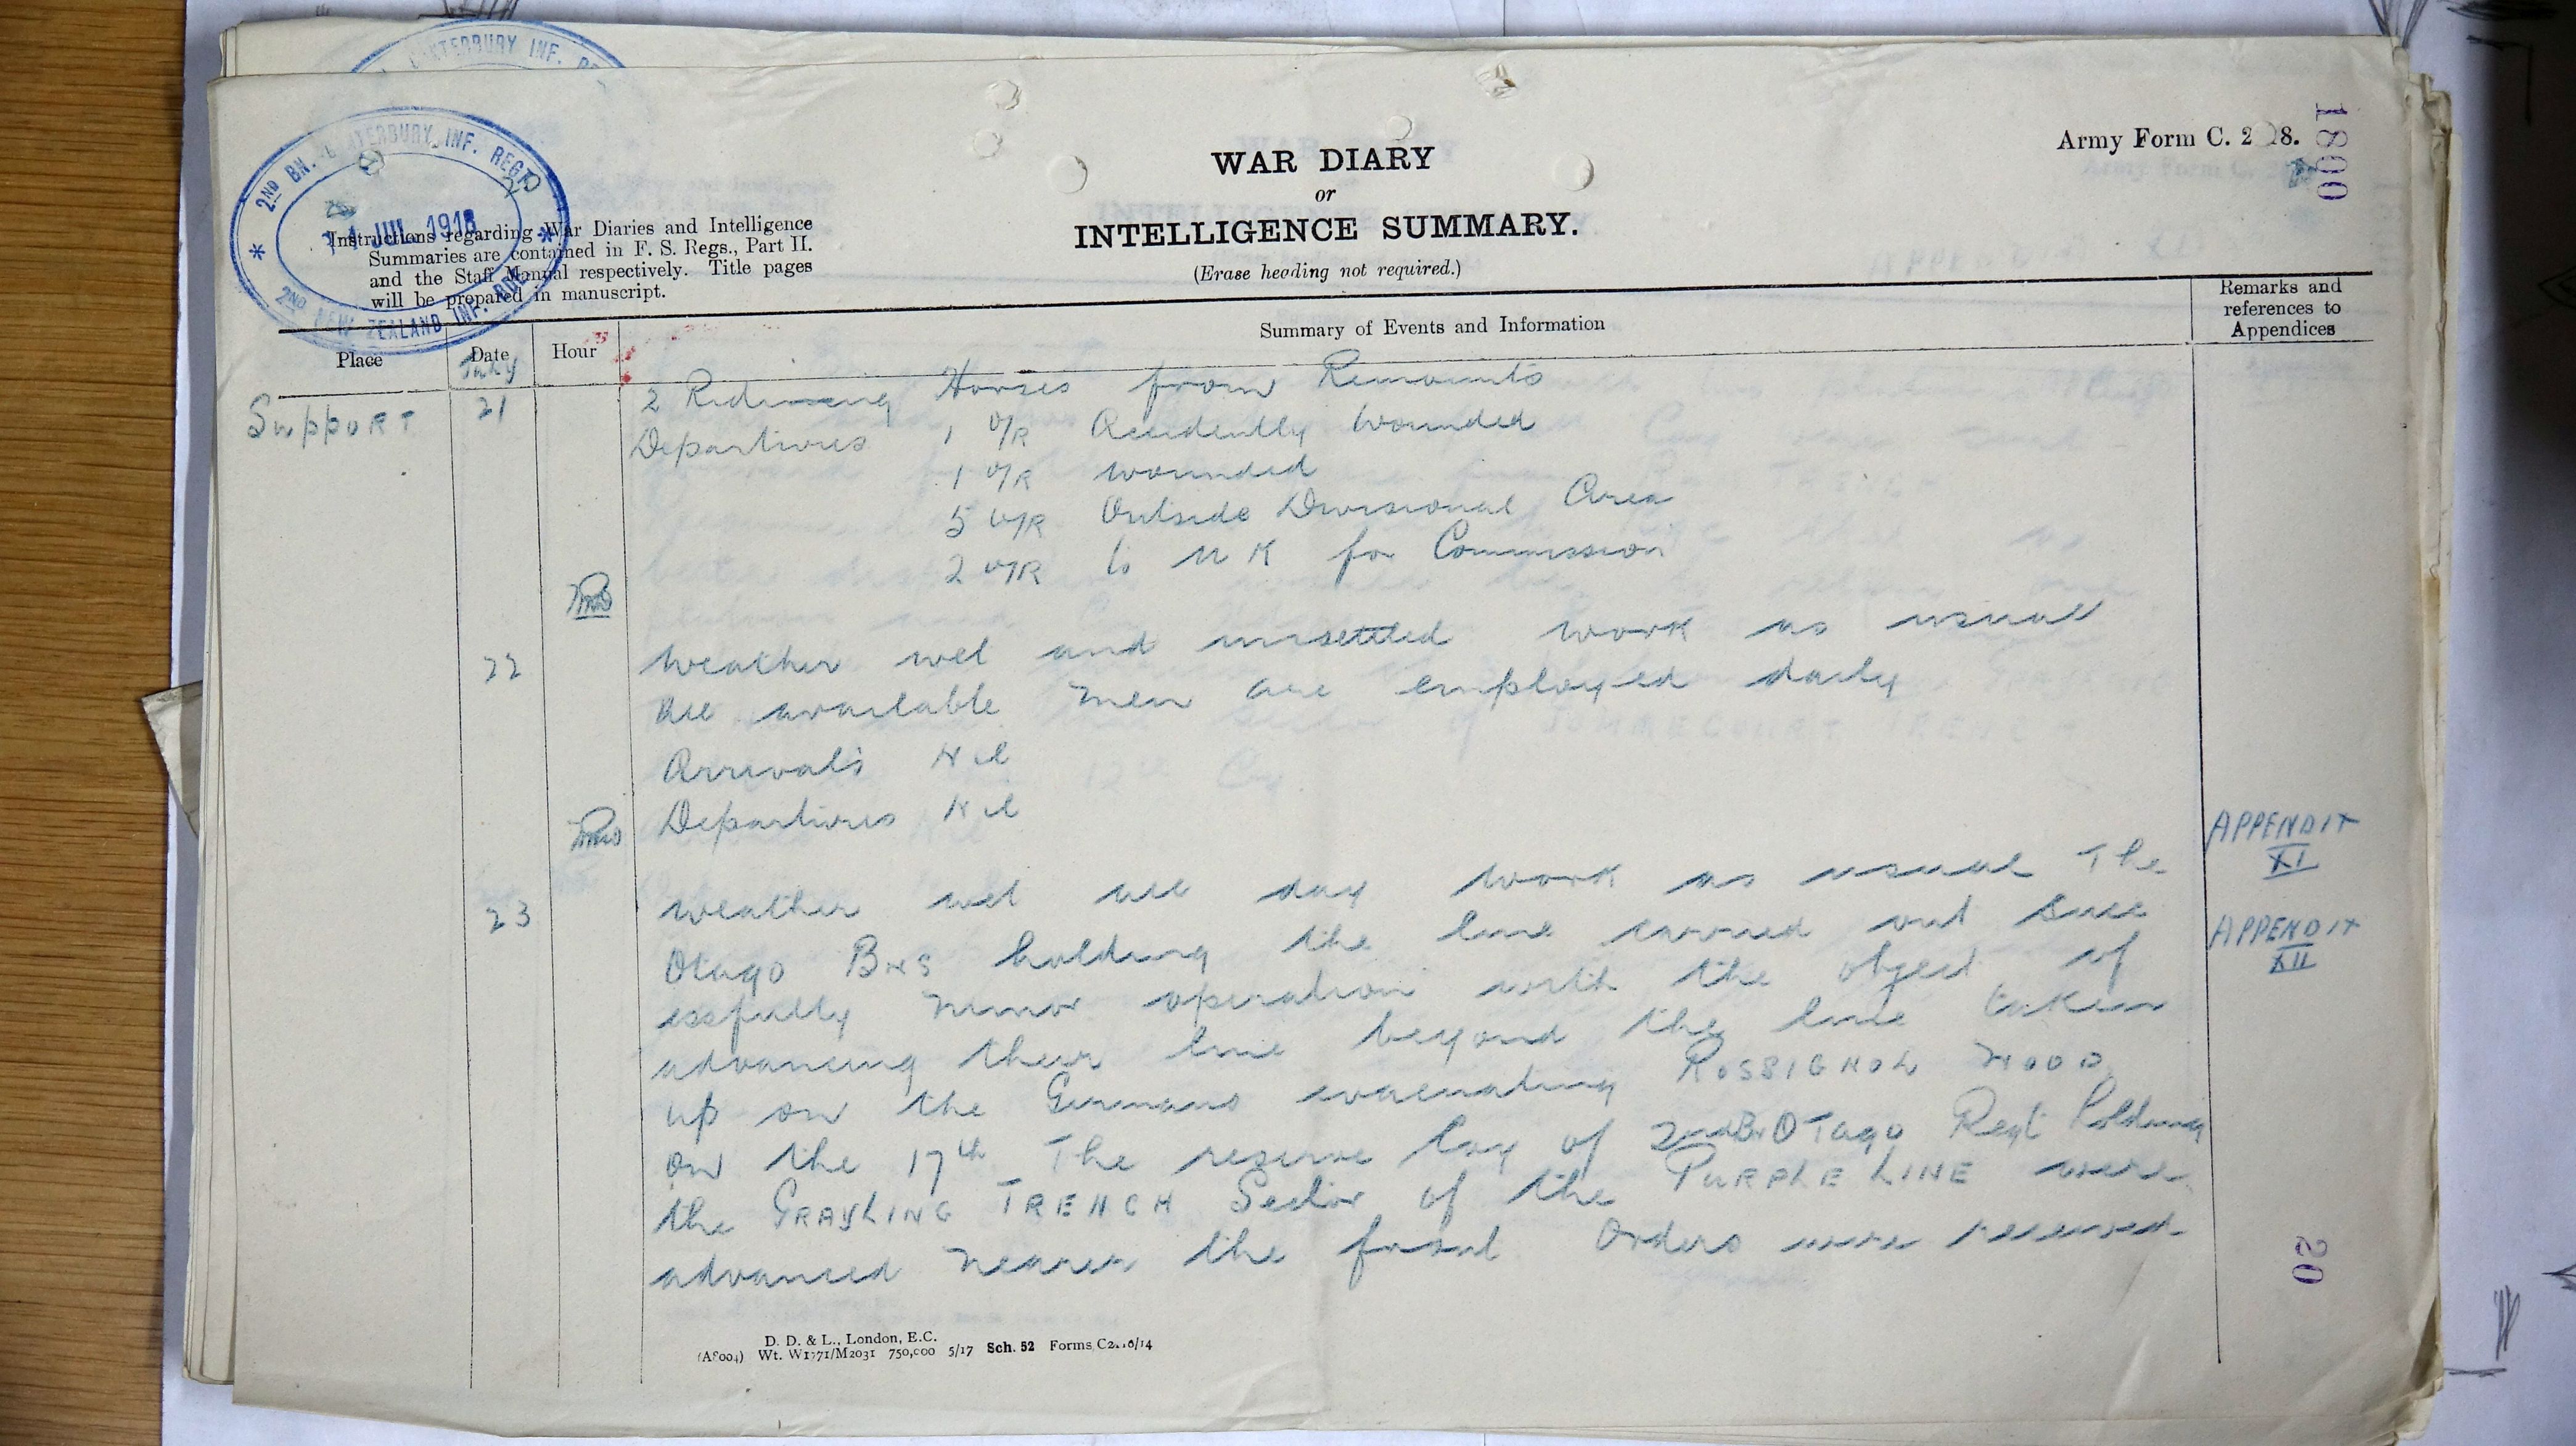 CANTERBURY INF. RE
2ND BN. CANTERBURY INF. REGT
JUL 1918
2ND NEW ZEALAND INF. BDE.
Army Form C. 2 18.
1800
WAR DIARY
or
INTELLIGENCE SUMMARY.
(Erase heading not required.)
Instructions regarding War Diaries and Intelligence
Summaries are contained in F. S. Regs., Part II.
and the Staff Manual respectively. Title pages
will be prepared in manuscript.
Place Date Hour Summary of Events and Information Remarks and references to Appendices
July
Support 21 2 Riding Horses from Remounts
Departures 1 O/R Accidently Wounded
1 O/R wounded
5 O/R Outside Divisional Area
2 O/R to U K for Commission
22 Weather wet and unsettled work as usual
All available men are employed daily
Arrivals Nil
Departures Nil
APPENDIX
XI
23 Weather wet all day work as usual The
Otago Bns holding the line carried out succ
APPENDIX
XII
essfully minor operation with the object of
advancing their line beyond the line taken
up on the Germans evacuating ROSSIGNOL WOOD
on the 17th The reserve Coy of 2nd Bn OTago Regt holding
the GRAYLING TRENCH Sector of the PURPLE LINE were
advanced nearer the front Orders were received
20
D. D. & L., London, E.C.
(A8004) Wt. W1771/M2031 750,000 5/17 Sch. 52 Forms C2118/14